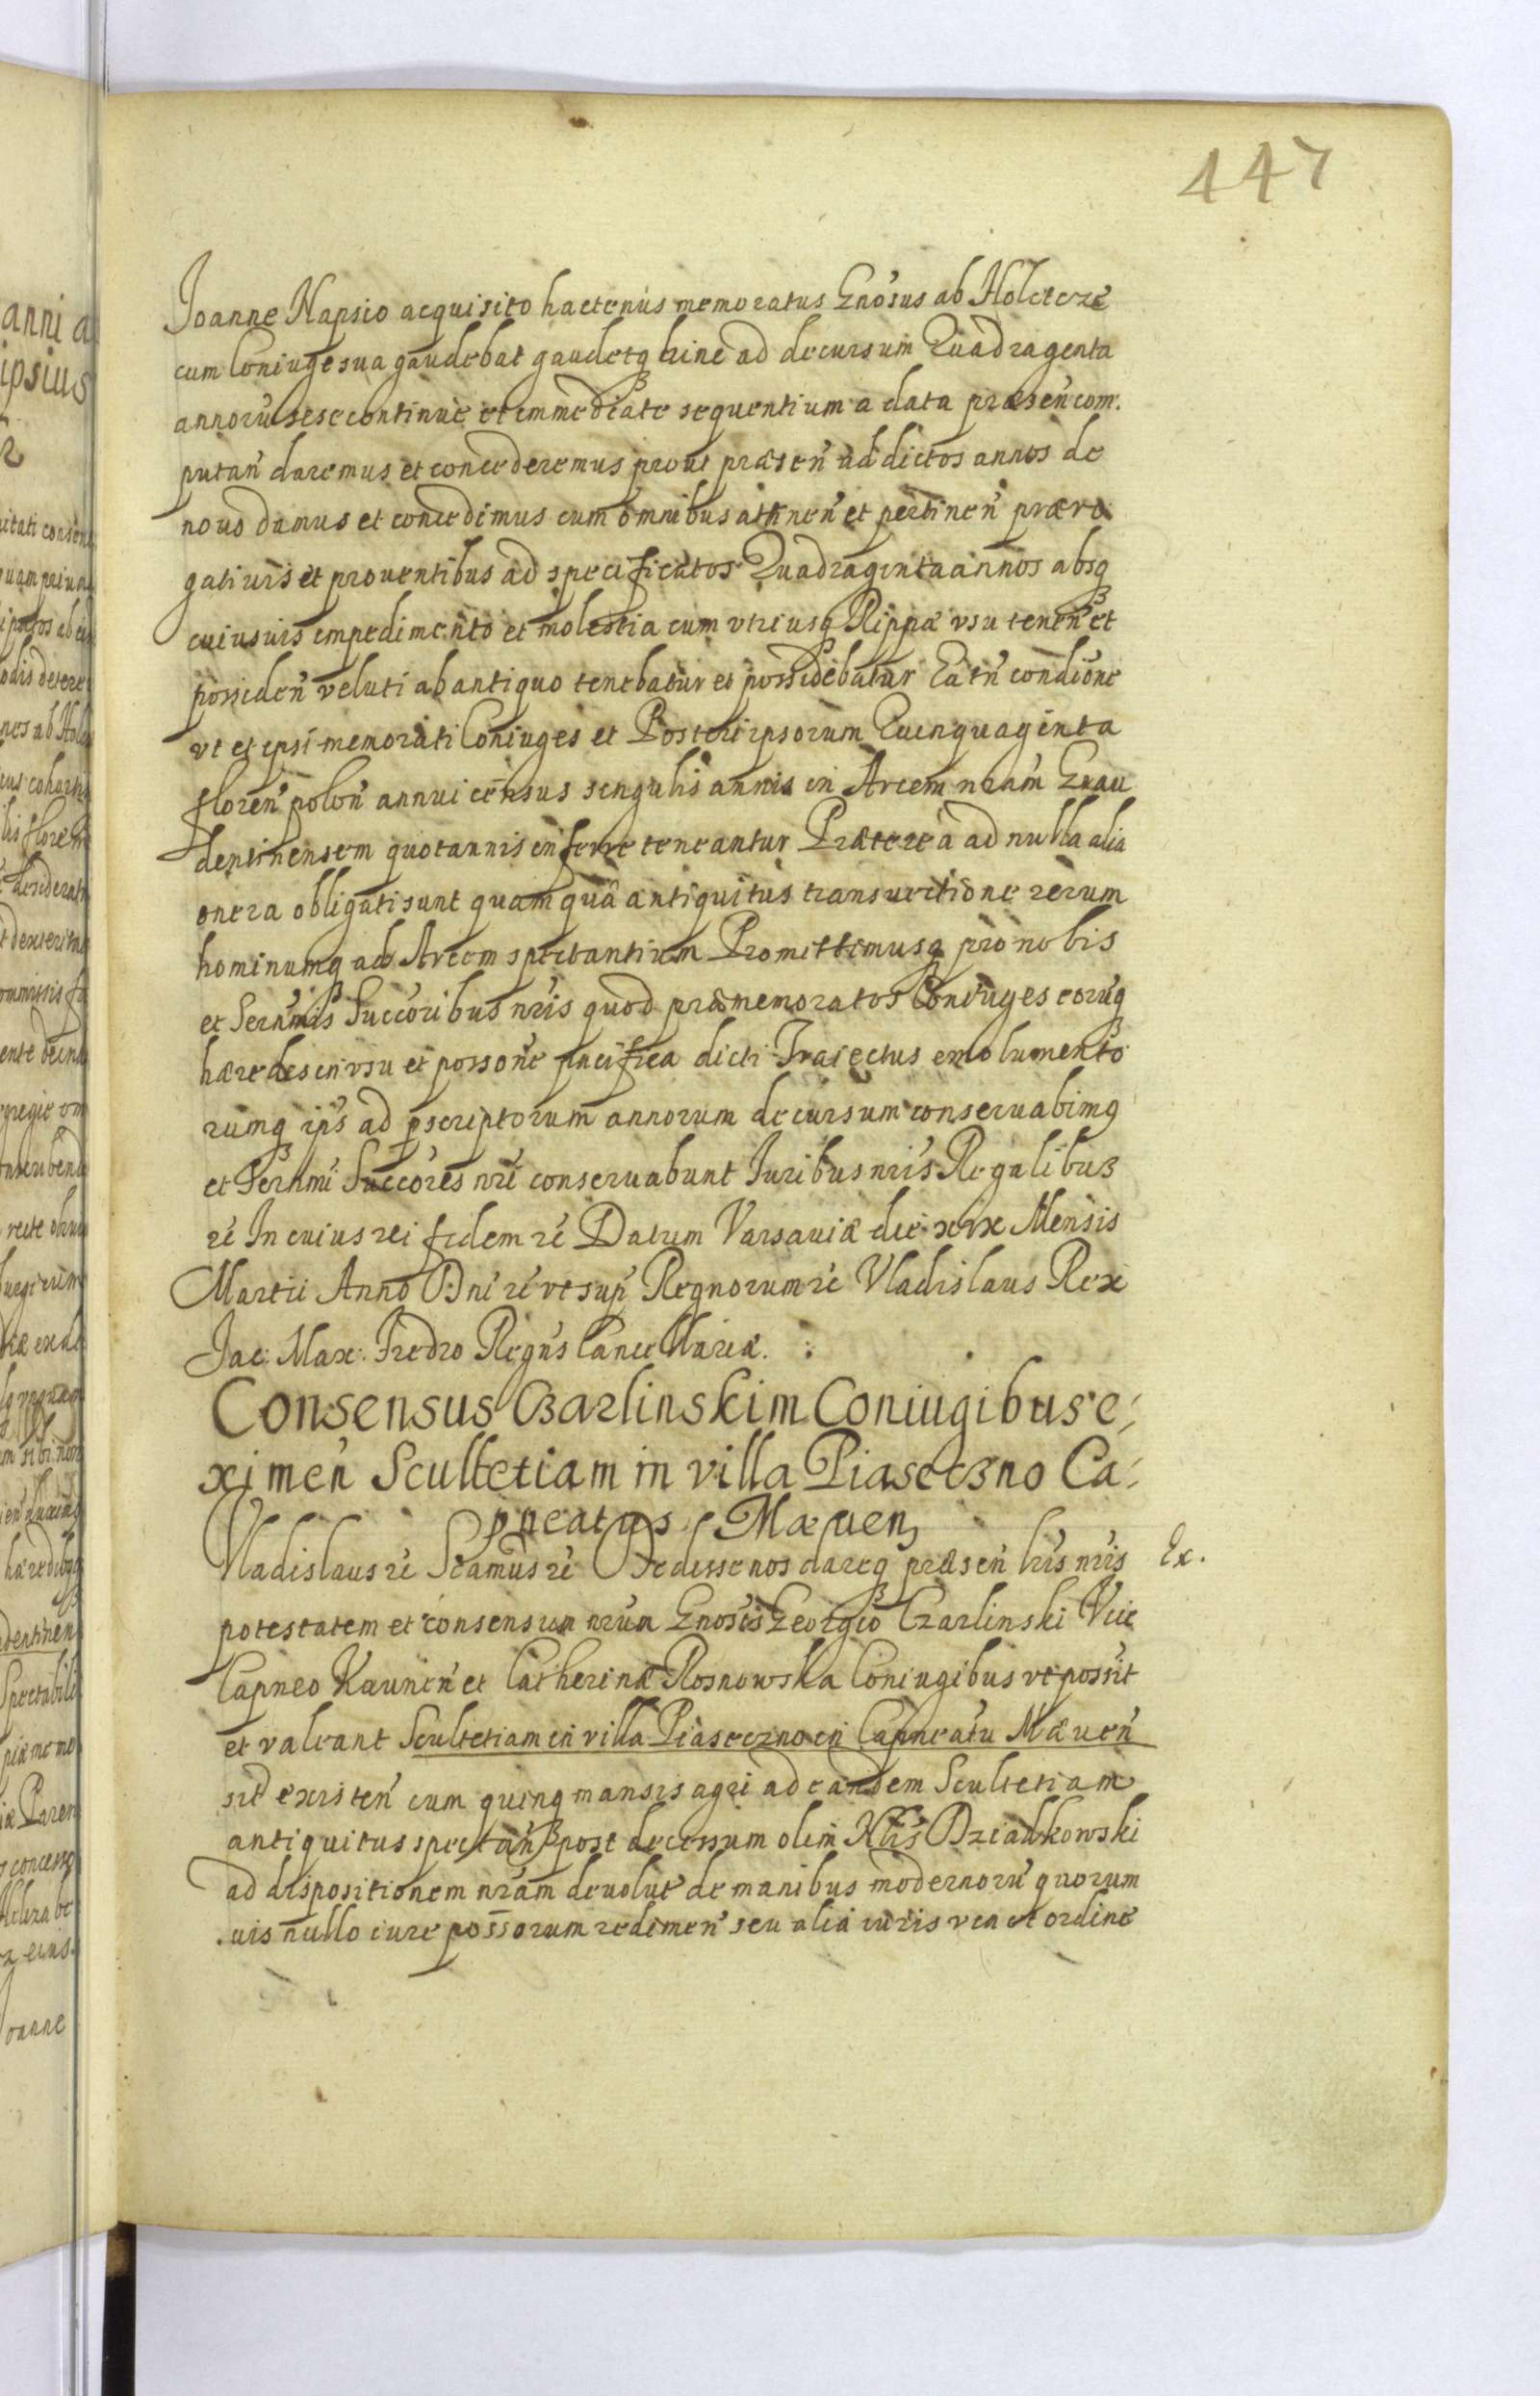 447
Joanne Napsio acquisito hactenus memoratus Gnosus ab Holetcze
cum Coniuge sua gaudebat gaudetq hinc ad decursum Quadraginta
annorũ sese continuè et immediate sequentium a data præsen̄ com.
putan̄ daremus et concederemus prout præsen̄ ad dictos annos de
nouo damus et concedimus cum omnibus attinen̄ et pertinen̄ præro
gatiuis et prouentibus ad specificatos Quadraginta annos absq
cuiusuis impedimento et molestia cum vtriusq Rippæ vsu tenen̄ et
possiden̄ veluti ab antiquo tenebatur et possidebatur Ea tn̄ condiōne
vt et ipsi memorati Coniuges et Posteri ipsorum Quinquaginta
floren̄ polon̄ annui census singulis annis in Arcem nrām Grau
dentinensem quotannis inferre teneantur Præterea ad nulla alia
onera obligati sunt quam quâ antiquitus transuectione rerum
hominumq ad Arcem spectantium Promittimusq pro nobis
et Sern̄mis Succōribus nr̄is quod præmemoratos Coniuges eorūq
hæredes in vsu et possōne pacifica dicti Traiectus emolumento
rumq ip̄s ad pscriptorum annorum decursum conseruabimq
et Sern̄mi Succōres nr̄i conseruabunt Juribus nr̄is Regalibus
rē In cuius rei fidem rē Datum Varsauiæ die xxix Mensis
Martii Anno Dn̄i rē vt sup̄ Regnorum rē Vladislaus Rex
Jac: Max: Fredro Regn̄s Cancellariæ.
Consensus Czarlinskim Coniugibus e:
ximen̄ Scultetiam in villa Piaseczno Ca:
pneatus Mæuen
Vladislaus rē Scamus rē Dedisse nos dareq præsen̄ lr̄is nr̄is Ex.
potestatem et consensum nrūm Gnosis Georgio Czarlinski Vice
Capneo Kaunen̄ et Catherinæ Rosnowska Coniugibus vt possit
et valeant Scultetiam in villa Piaseczno in Capneatu Mæuen̄
sit existen̄ cum quinq mansis agri ad eandem Scultetiam
antiquitus spectan̄ post decessum olim Nlis Dziadkowski
ad dispositionem nrām deuolut de manibus modernorū quorum
uis nullo iure possōrum redimen̄ seu alia iuris via et ordine